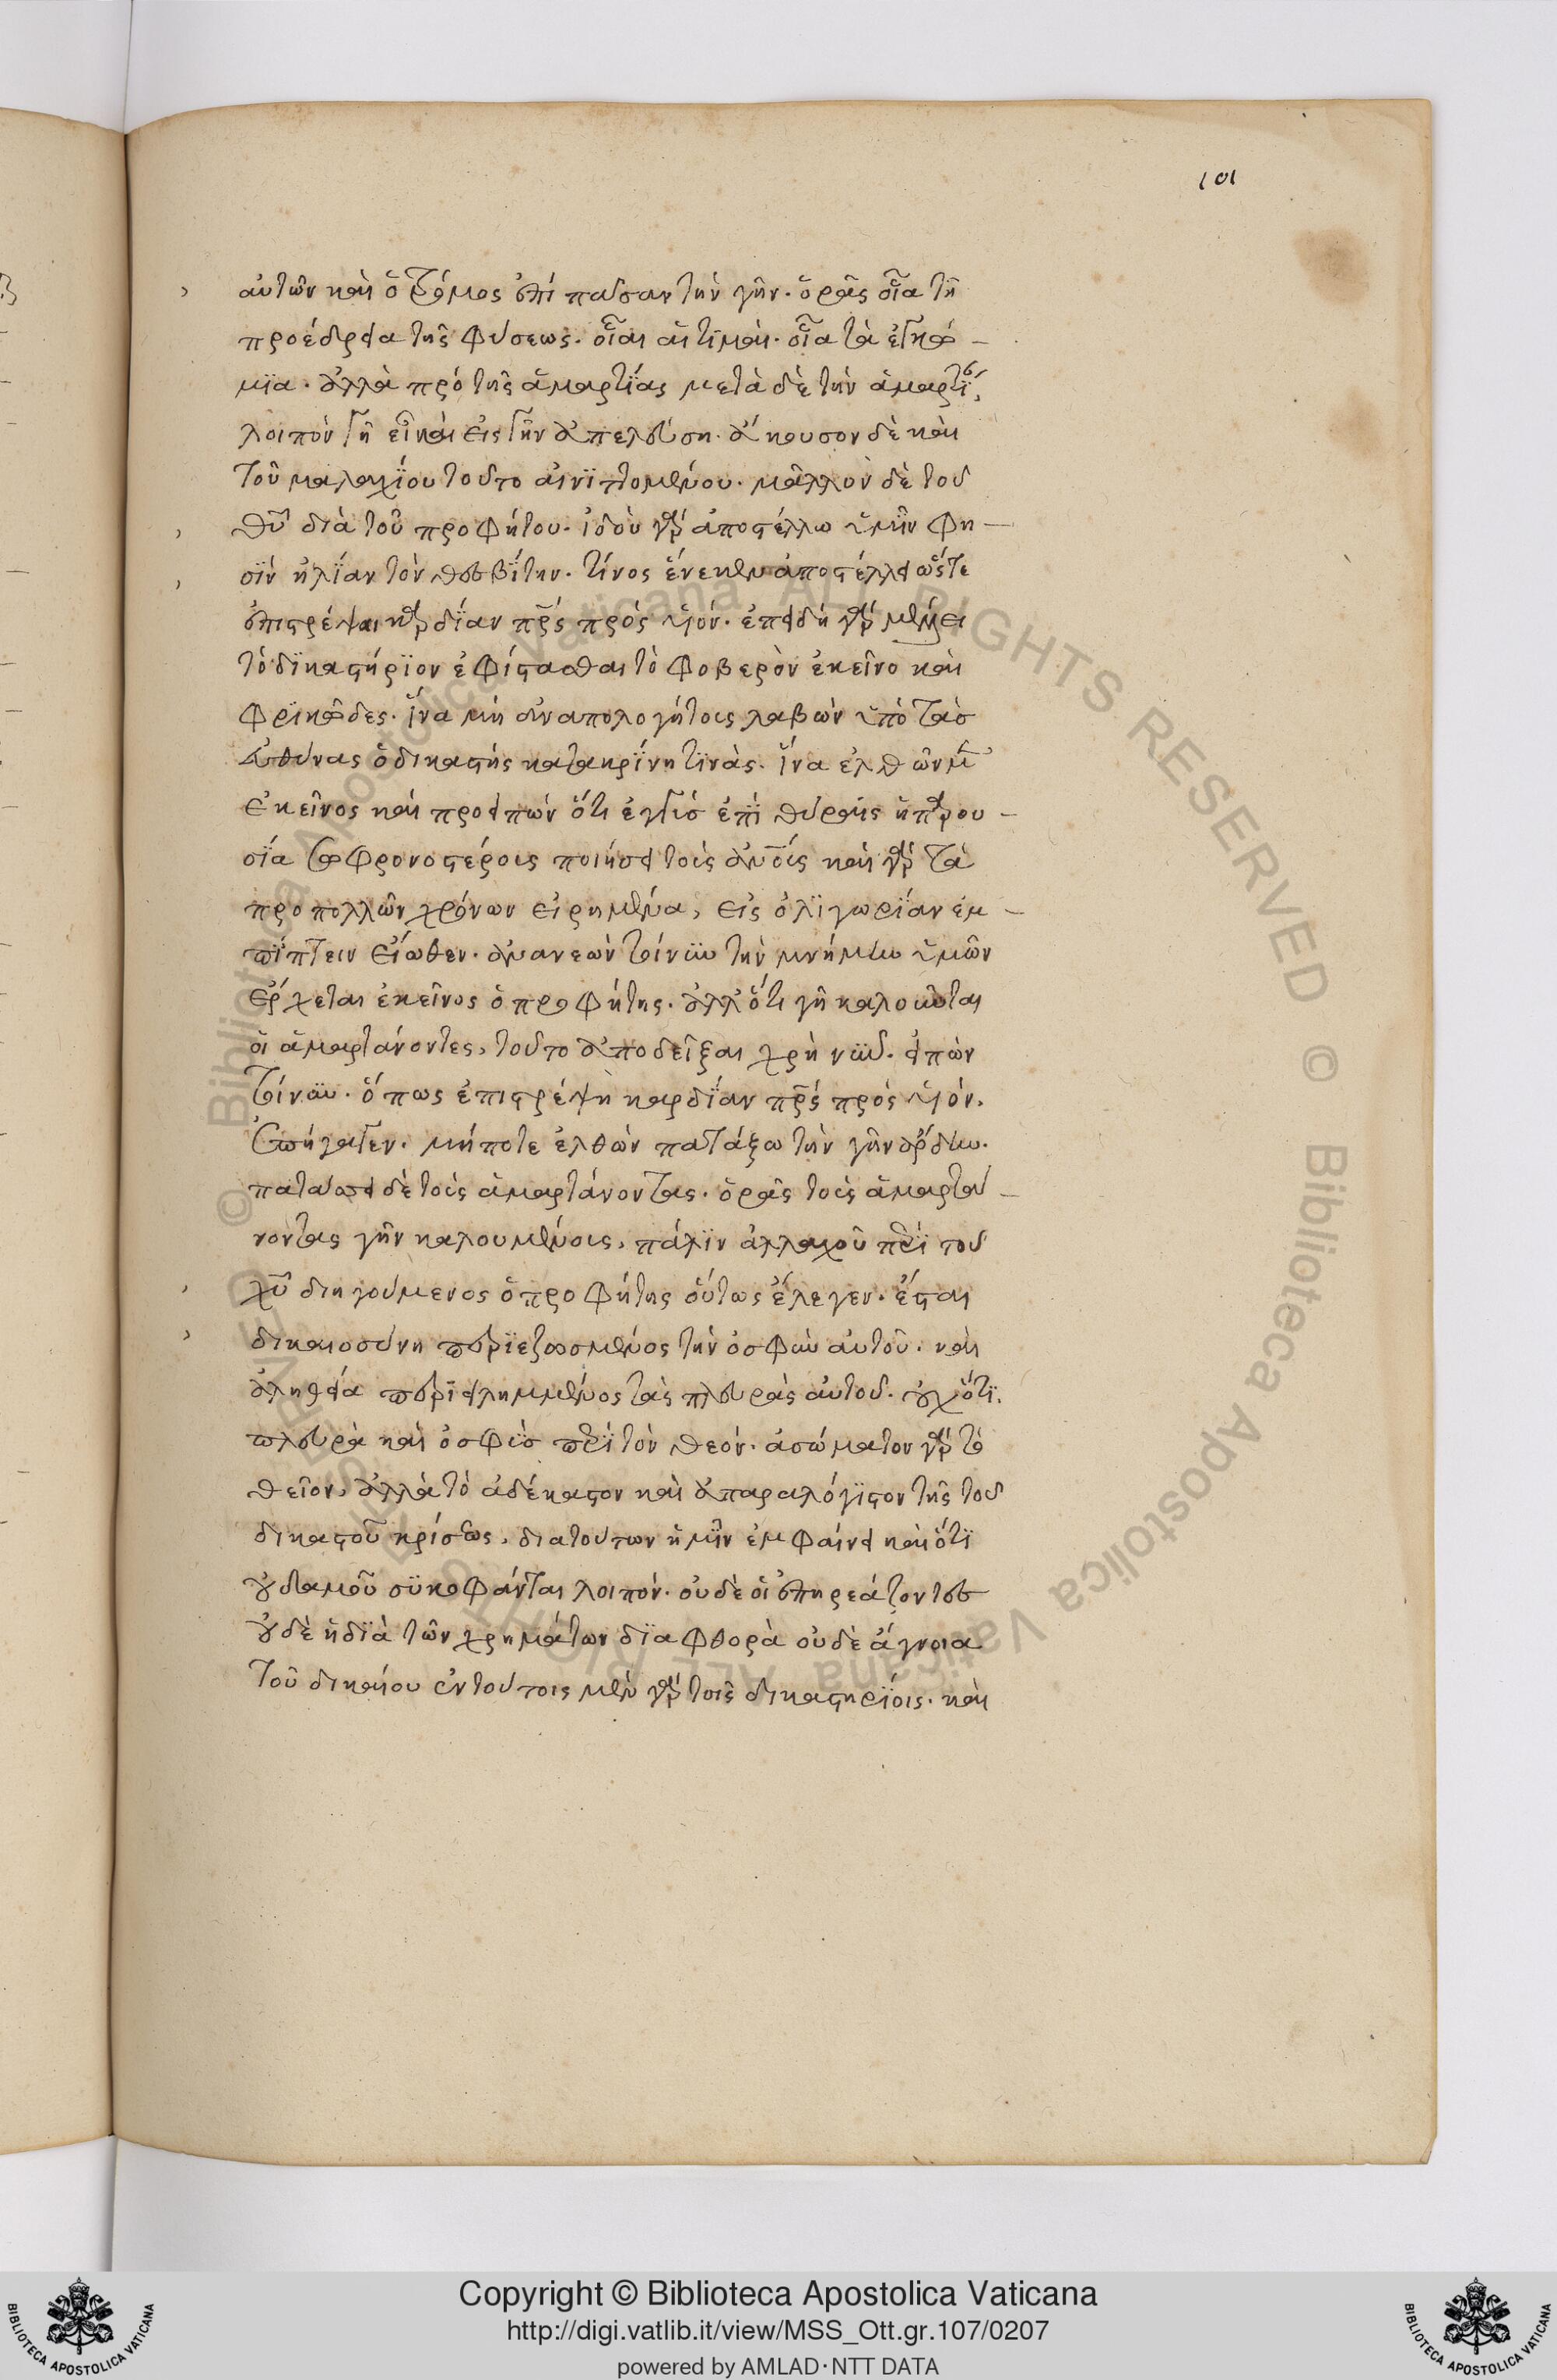 101
αὐτῶν καὶ ὁ τρόμος ἐπὶ πᾶσαν τὴν γῆν. ὁρᾷς οἷα τῆ
προέδρεια τῆς φύσεως. οἷαι αἱ τιμαὶ. οἷα τὰ ἐγκώ –
μϊα. ἀλλὰ πρὸ τῆς ἁμαρτΐας μετὰ δὲ τὴν ἁμαρτΐ
λοιπὸν γῆ εἶ καὶ εἰς γῆν ἀπελεύση. ἄκουσον δὲ καὶ
τοῦ μαλαχΐου τοῦτο αἰνϊττομένου. μᾶλλον δὲ τοῦ
θῦ διὰ τοῦ προφήτου. ἰδοὺ γὰρ ἀποστέλλω ὑμῖν φη –
σϊν ἠλΐαν τὸν θεσβΐτην. τίνος ἕνεκεν ἀποστέλλει ὥστε
ἐπιστρέψαι καρδΐαν πρς πρὸς υἱόν. ἐπειδὴ γὰρ μέλλει
τὸ δϊκαστήρϊον ἐφίστασθαι τὸ φοβερὸν ἐκεῖνο καὶ
φρϊκῶδες. ἵνα μὴ ἀναπολογήτους λαβὼν ὑπὸ τὰσ
εὐθύνας ὁ δικαστὴς κατακρΐνη τϊνὰς. ἵνα ἐλθὼν
ἐκεῖνος καὶ προειπὼν ὅτι ἐγγὺσ ἐπῒ θύραις ἡ παρου –
σΐα σωφρονοστέρους ποιήσει τοὺς αὐτοὺς καὶ γὰρ τὰ
προ πολλῶν χρόνων εἰρημένα, εἰς ὀλϊγωρΐαν ἐμ –
πΐπτειν εἴωθεν. ἀνανεῶν τοίνυν τὴν μνήμην ὑμῶν
ἔρχεται ἐκεῖνος ὁ προφήτης. ἀλλ' ὅτι γῆ καλοῦνται
οἱ ἁμαρτάνοντες, τοῦτο ἀποδεῖξαι χρὴ νῦν. εἰπὼν
τοίνυν. ὅπως ἐπιστρέψη καρδΐαν πρς πρὸς υἱόν.
ἐπήγαγεν. μήποτε ἐλθὼν πατάξω τὴν γῆν ἄρδην.
πατάσσει δὲ τοὺς ἁμαρτάνοντας. ὁρᾷς τοὺς ἁμαρτά –
νοντας γῆν καλουμένους, πάλϊν ἀλλαχοῦ περῒ τοῦ
χῦ διηγούμενος ὁ προφήτης οὕτως ἔλεγεν. ἔσται
δικαιοσύνη περϊεζωσμένος τὴν ὀσφὺν αὐτοῦ. καὶ
ἀληθεία περϊειλημμένος τὰς πλευρὰς αὐτοῦ. οὐχ ὅτϊ
πλευρὰ καὶ ὀσφὺσ περῒ τὸν θεόν. ἀσώματον γὰρ τὸ
θεῖον, ἀλλὰ τὸ ἀδέκαστον καὶ ἀπαραλόγϊστον τῆς τοῦ
δικαστοῦ κρίσεως, διατούτων ἡμῖν ἐμφαίνει καὶ ὅτϊ
οὐδαμοῦ σϋκοφάνται λοιπόν. οὐδὲ οἱ ἐπηρεάζοντες
οὐδὲ ἡ δϊὰ τῶν χρημάτων δϊαφθορὰ οὐδὲ ἄγνοια
τοῦ δικαίου ἐν τούτοις μὲν γὰρ τοῖς δικαστηρΐοις. καὶ
© Biblioteca Apostolica Vaticana ALL RIGHTS RESERVED © Biblioteca Apostolica Vaticana ALL RIGHTS RESERVED
Copyright © Biblioteca Apostolica Vaticana
http://digi.vatlib.it/view/MSS_Ott.gr.107/0207
powered by AMLAD·NTT DATA
BIBLIOTECA APOSTOLICA VATICANA
BIBLIOTECA APOSTOLICA VATICANA